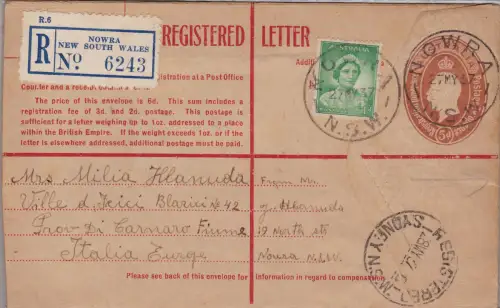 R.6
R
NOWRA
NEW SOUTH WALES
No 6243
REGISTERED LETTER
egistration at a Post Office
Counter and a receipt
The price of this envelope is 5d. This sum includes a
registration fee of 3d. and 2d. postage. This postage is
sufficient for a letter weighing up to 1oz. addressed to a place
within the British Empire. If the weight exceeds 1oz. or if the
letter is addressed elsewhere, additional postage must be paid.
NOWRA
27 MY 37
N.S.W.
NOWRA
27 MY 37
N.S.W.
Mrs Milia
Ville d,
No 42
Prov Di Carnaro Fiume
Italia Europe
From Mr.
19 North st
Nowra N.S.W.
REGISTERED
SYDNEY N.S.W.
Please see back of this envelope for information in regard to compensation.